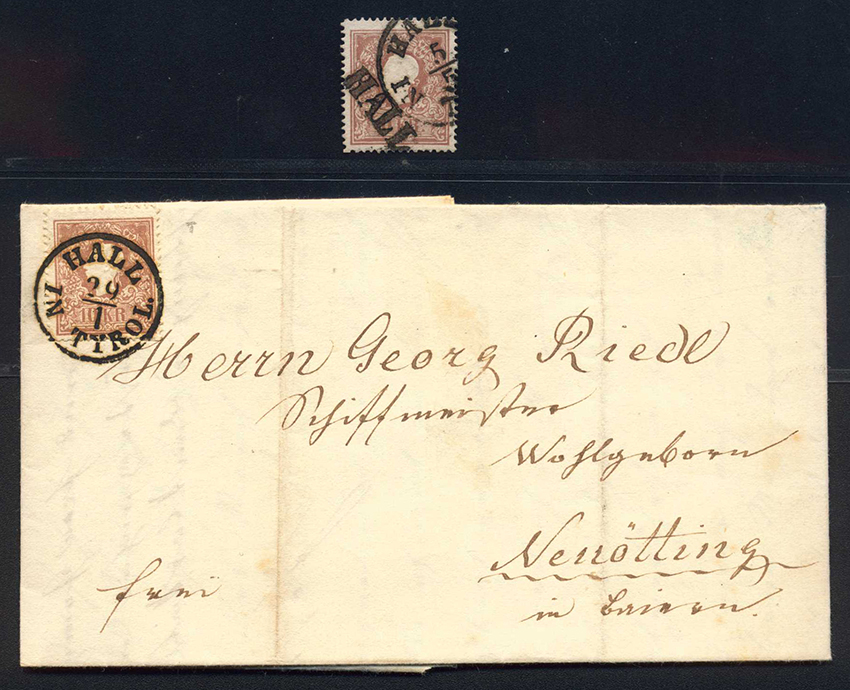 HALL
IN
5/
HALL
HALL
29
1
IN TYROL.
10 KR
Herrn Georg Riedl
Schiffmeister
Wohlgeborn
Neuötting
frei
in Baiern.